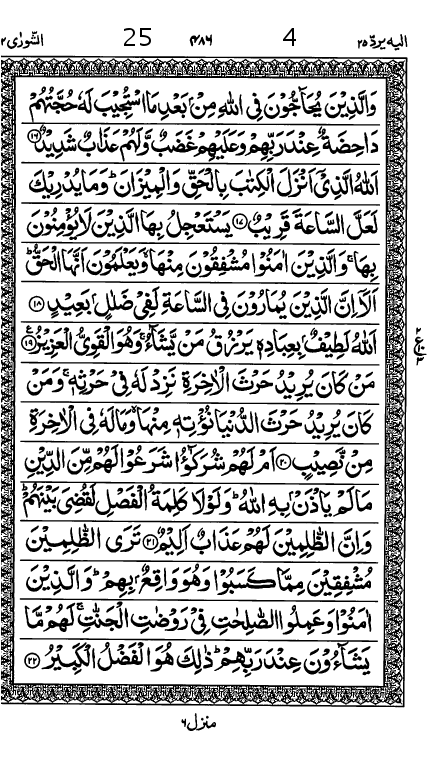 الیه یردّ ۲۵ 4 ۴۸۶ 25 الشورٰی ۴۲
وَالَّذِیْنَ یُحَآجُّوْنَ فِی اللّٰهِ مِنْۢ بَعْدِ مَا اسْتُجِیْبَ لَهٗ حُجَّتُهُمْ
دَاحِضَةٌ عِنْدَ رَبِّهِمْ وَعَلَیْهِمْ غَضَبٌ وَّلَهُمْ عَذَابٌ شَدِیْدٌ ۝۱۶
اَللّٰهُ الَّذِیْۤ اَنْزَلَ الْکِتٰبَ بِالْحَقِّ وَالْمِیْزَانَ ؕ وَمَا یُدْرِیْكَ
لَعَلَّ السَّاعَةَ قَرِیْبٌ ۝۱۷ یَسْتَعْجِلُ بِهَا الَّذِیْنَ لَا یُؤْمِنُوْنَ
بِهَا ۚ وَالَّذِیْنَ اٰمَنُوْا مُشْفِقُوْنَ مِنْهَا وَیَعْلَمُوْنَ اَنَّهَا الْحَقُّ ؕ
اَلَاۤ اِنَّ الَّذِیْنَ یُمَارُوْنَ فِی السَّاعَةِ لَفِیْ ضَلٰلٍۭ بَعِیْدٍ ۝۱۸
اَللّٰهُ لَطِیْفٌۢ بِعِبَادِهٖ یَرْزُقُ مَنْ یَّشَآءُ ۚ وَهُوَ الْقَوِیُّ الْعَزِیْزُ ۝۱۹ ع
مَنْ کَانَ یُرِیْدُ حَرْثَ الْاٰخِرَةِ نَزِدْ لَهٗ فِیْ حَرْثِهٖ ۚ وَمَنْ
کَانَ یُرِیْدُ حَرْثَ الدُّنْیَا نُؤْتِهٖ مِنْهَا ۙ وَمَا لَهٗ فِی الْاٰخِرَةِ
مِنْ نَّصِیْبٍ ۝۲۰ اَمْ لَهُمْ شُرَکٰٓؤُا شَرَعُوْا لَهُمْ مِّنَ الدِّیْنِ
مَا لَمْ یَاْذَنْۢ بِهِ اللّٰهُ ؕ وَلَوْلَا کَلِمَةُ الْفَصْلِ لَقُضِیَ بَیْنَهُمْ ؕ
وَاِنَّ الظّٰلِمِیْنَ لَهُمْ عَذَابٌ اَلِیْمٌ ۝۲۱ تَرَی الظّٰلِمِیْنَ
مُشْفِقِیْنَ مِمَّا کَسَبُوْا وَهُوَ وَاقِعٌۢ بِهِمْ ؕ وَالَّذِیْنَ
اٰمَنُوْا وَعَمِلُوا الصّٰلِحٰتِ فِیْ رَوْضٰتِ الْجَنّٰتِ ۚ لَهُمْ مَّا
یَشَآءُوْنَ عِنْدَ رَبِّهِمْ ؕ ذٰلِكَ هُوَ الْفَضْلُ الْکَبِیْرُ ۝۲۲
منزل ۶